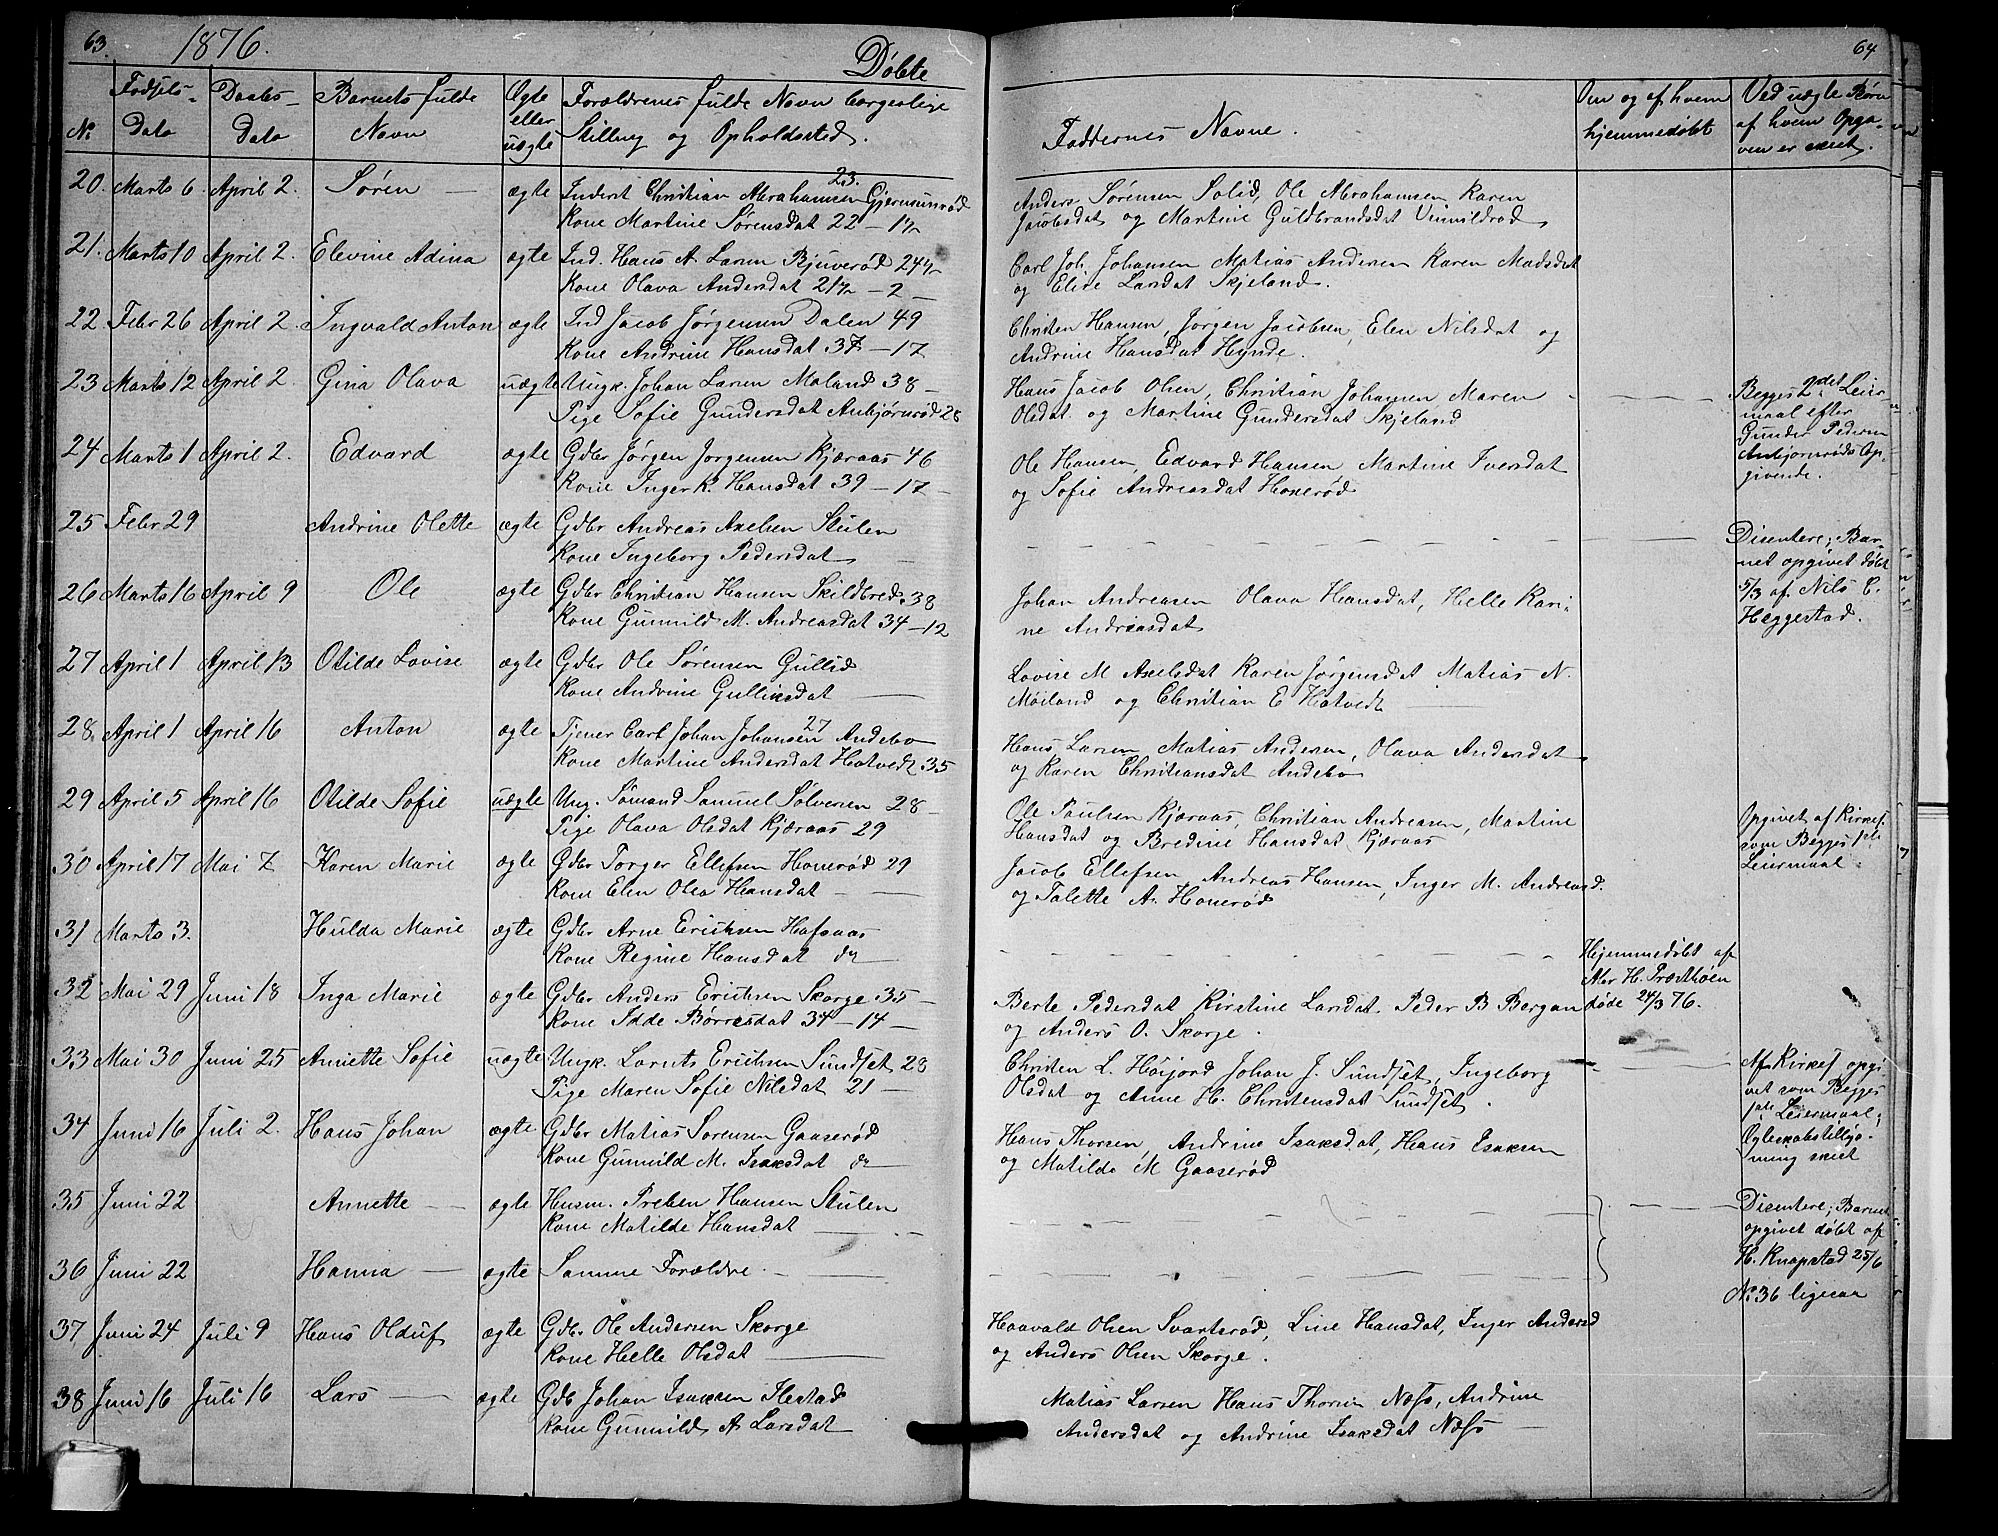 63. 1876. Døbte 64
No
Fødsels-
Dato
Daabs-
Dato
Barnets fulde
Navn
Ægte
eller
uægte
Forældrenes fulde Navn borgerlige
Stilling og Opholdssted.
Faddernes Navne.
Om og af hvem
hjemmedøbt
Ved uægte Børn
af hvem Opga-
ven er skeet.
20. Marts 6. April 2. Søren — ægte Inderst Christian Abrahamsen 23. Gjermunrød
Kone Martine Sørensdat 22 — 1/2
Anders Sørensen Solid, Ole Abrahamsen Karen
Jacobsdat og Martine Guldbrandsdat Vinnildrød
21. Marts 10 April 2. Elevine Adina ægte Ind. Hans A. Larsen Bjuerød 24 1/2
Kone Olava Andersdat 21 1/2 — 2 —
Carl Joh. Johansen Matias Andersen Karen Madsdat
og Elise Larsdat Skjeland.
22 Febr 26 April 2. Ingvald Anton ægte Ind Jacob Jørgensen Dalen 49
Kone Andrine Hansdat 37 — 17
Christen Hansen, Jørgen Jacobsen, Elen Nilsdat og
Andrine Hansdat Hynde.
23 Marts 12 April 2. Gina Olava uægte Ungk. Johan Larsen Møland 38 —
Pige Sofie Gundersdat Anbjørnrød 28
Hans Jacob Olsen, Christian Johansen Maren
Olsdat og Martine Gundersdat Skjeland
Begges 2det Leier-
maal efter
Gunder Pedersen
Anbjørnrøds Op-
givende.
24 Marts 1 April 2. Edvard ægte Gdbr Jørgen Jørgensen Kjæraas 46
Kone Inger K. Hansdat 39 — 17 —
Ole Hansen, Edvard Hansen Martine Iversdat
og Sofie Andreasdat Honerød
25 Febr 29 Andrine Olette ægte Gdbr Andreas Axelsen Stulen
Kone Ingeborg Pedersdat —
Disentere; Bar-
net opgivet døbt
5/3 af Nils C.
Heggestad.
26 Marts 16 April 9 Ole ægte Gdbr Christian Hansen Skildbred. 38
Kone Gunnild M. Andreasdat 34 — 12
Johan Andreasen Olava Hansdat, Helle Kari-
ne Andreasdat
27 April 1 April 13 Otilde Lovise ægte Gdbr Ole Sørensen Gullid
Kone Andrine Gulliksdat —
Lovise M Axelsdat Karen Jørgensdat Matias N.
Møiland og Christian E Hotvedt
28. April 1 April 16 Anton ægte Tjener Carl Johan Johansen 27 Andebo
Kone Martine Andersdat Hotvedt 35
Hans Larsen, Matias Andersen, Olava Andersdat
og Karen Christiansdat Andebo
29 April 5 April 16 Otilde Sofie uægte Ung. Sømand Samuel Sølversen 28 —
Pige Olava Olsdat Kjæraas 29
Ole Paulsen Kjæraas, Christian Andreasen, Martine
Hansdat og Bredine Hansdat Kjæraas
Opgivet af Kirkes.
som Begges 1ste
Leiermaal
30 April 17 Mai 7 Karen Marie ægte Gdbr Torger Ellefsen Honerød 29
Kone Elen Olea Hansdat —
Jacob Ellefsen, Andreas Hansen, Inger M. Andreasd.
og Talette A. Honerød
31 Marts 3. Hulda Marie ægte Gdbr Arne Erichsen Hafsaas
Kone Regine Hansdat do
Hjemmedøbt af
Abr H. Præsthøen
døde 24/3 76.
32 Mai 29 Juni 18 Inga Marie ægte Gdbr Anders Erichsen Skorge 35 —
Kone Idde Børresdat 34 — 14 —
Berte Pedersdat Kirstine Larsdat. Peder B Bergan
og Anders O. Skorge.
33 Mai 30 Juni 25 Annette Sofie uægte Ungk. Larnts Erichsen Sundset 28
Pige Maren Sofie Nilsdat 21 —
Christen L. Høijord Johan J. Sundset, Ingeborg
Olsdat og Anne H. Christensdat Sundset.
Af Kirkes opgi-
vet som Begges
1ste Leiermaal;
Ægteskabstillysn-
ning skeet
34 Juni 16 Juli 2. Hans Johan ægte Gdbr Matias Sørensen Gaaserød
Kone Gunnild M. Isaksdat do
Hans Thorsen, Andrine Isaksdat, Hans Isaksen
og Matilde M Gaaserød
35 Juni 22 Annette — ægte Husm. Preben Hansen Stulen
Kone Matilde Hansdat —
Disentere; Barnet
opgivet døbt af
H. Knapstad 25/6
36 Juni 22 Hanna — ægte Samme Forældre. —
No 36 ligesaa
37 Juni 24 Juli 9 Hans Olduf ægte Gdb. Ole Andersen Skorge
Kone Helle Olsdat —
Haavald Olsen Svartsrød, Line Hansdat, Inger Andersd
og Anders Olsen Skorge.
38 Juni 16 Juli 16 Lars — ægte Gdb Johan Isaksen Flestad
Kone Gunnild A Larsdat
Matias Larsen Hans Thorsen Næss, Andrine
Andersdat og Andrine Isaksdat Næss —